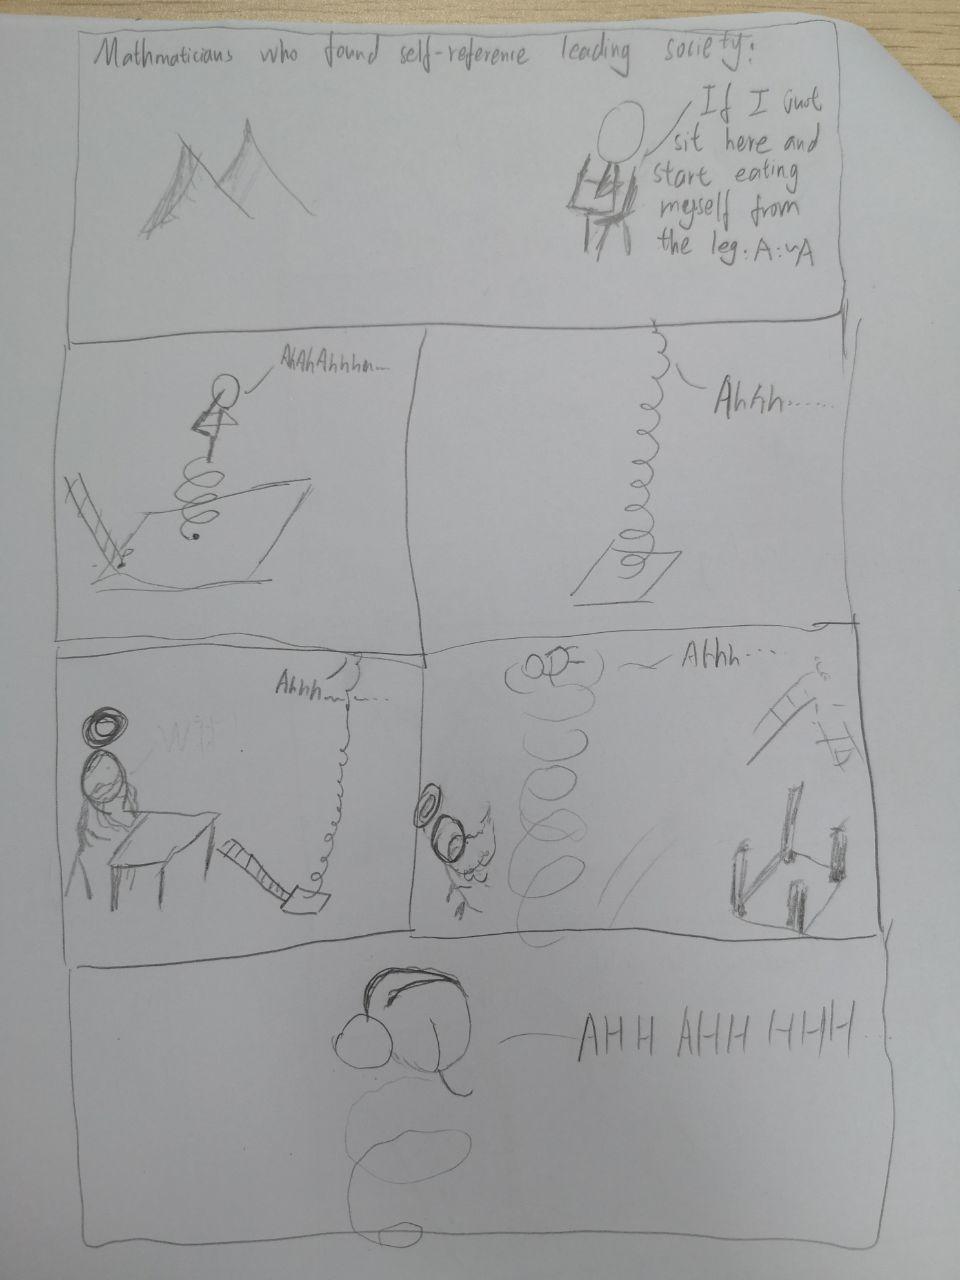 Mathmaticians who found self-reference leading society:
If I just
sit here and
start eating
myself from
the leg: A:~A
AhAhAhhhh......
Ahhh......
Ahhh......
Ahhh....
AHH AHH HHH...